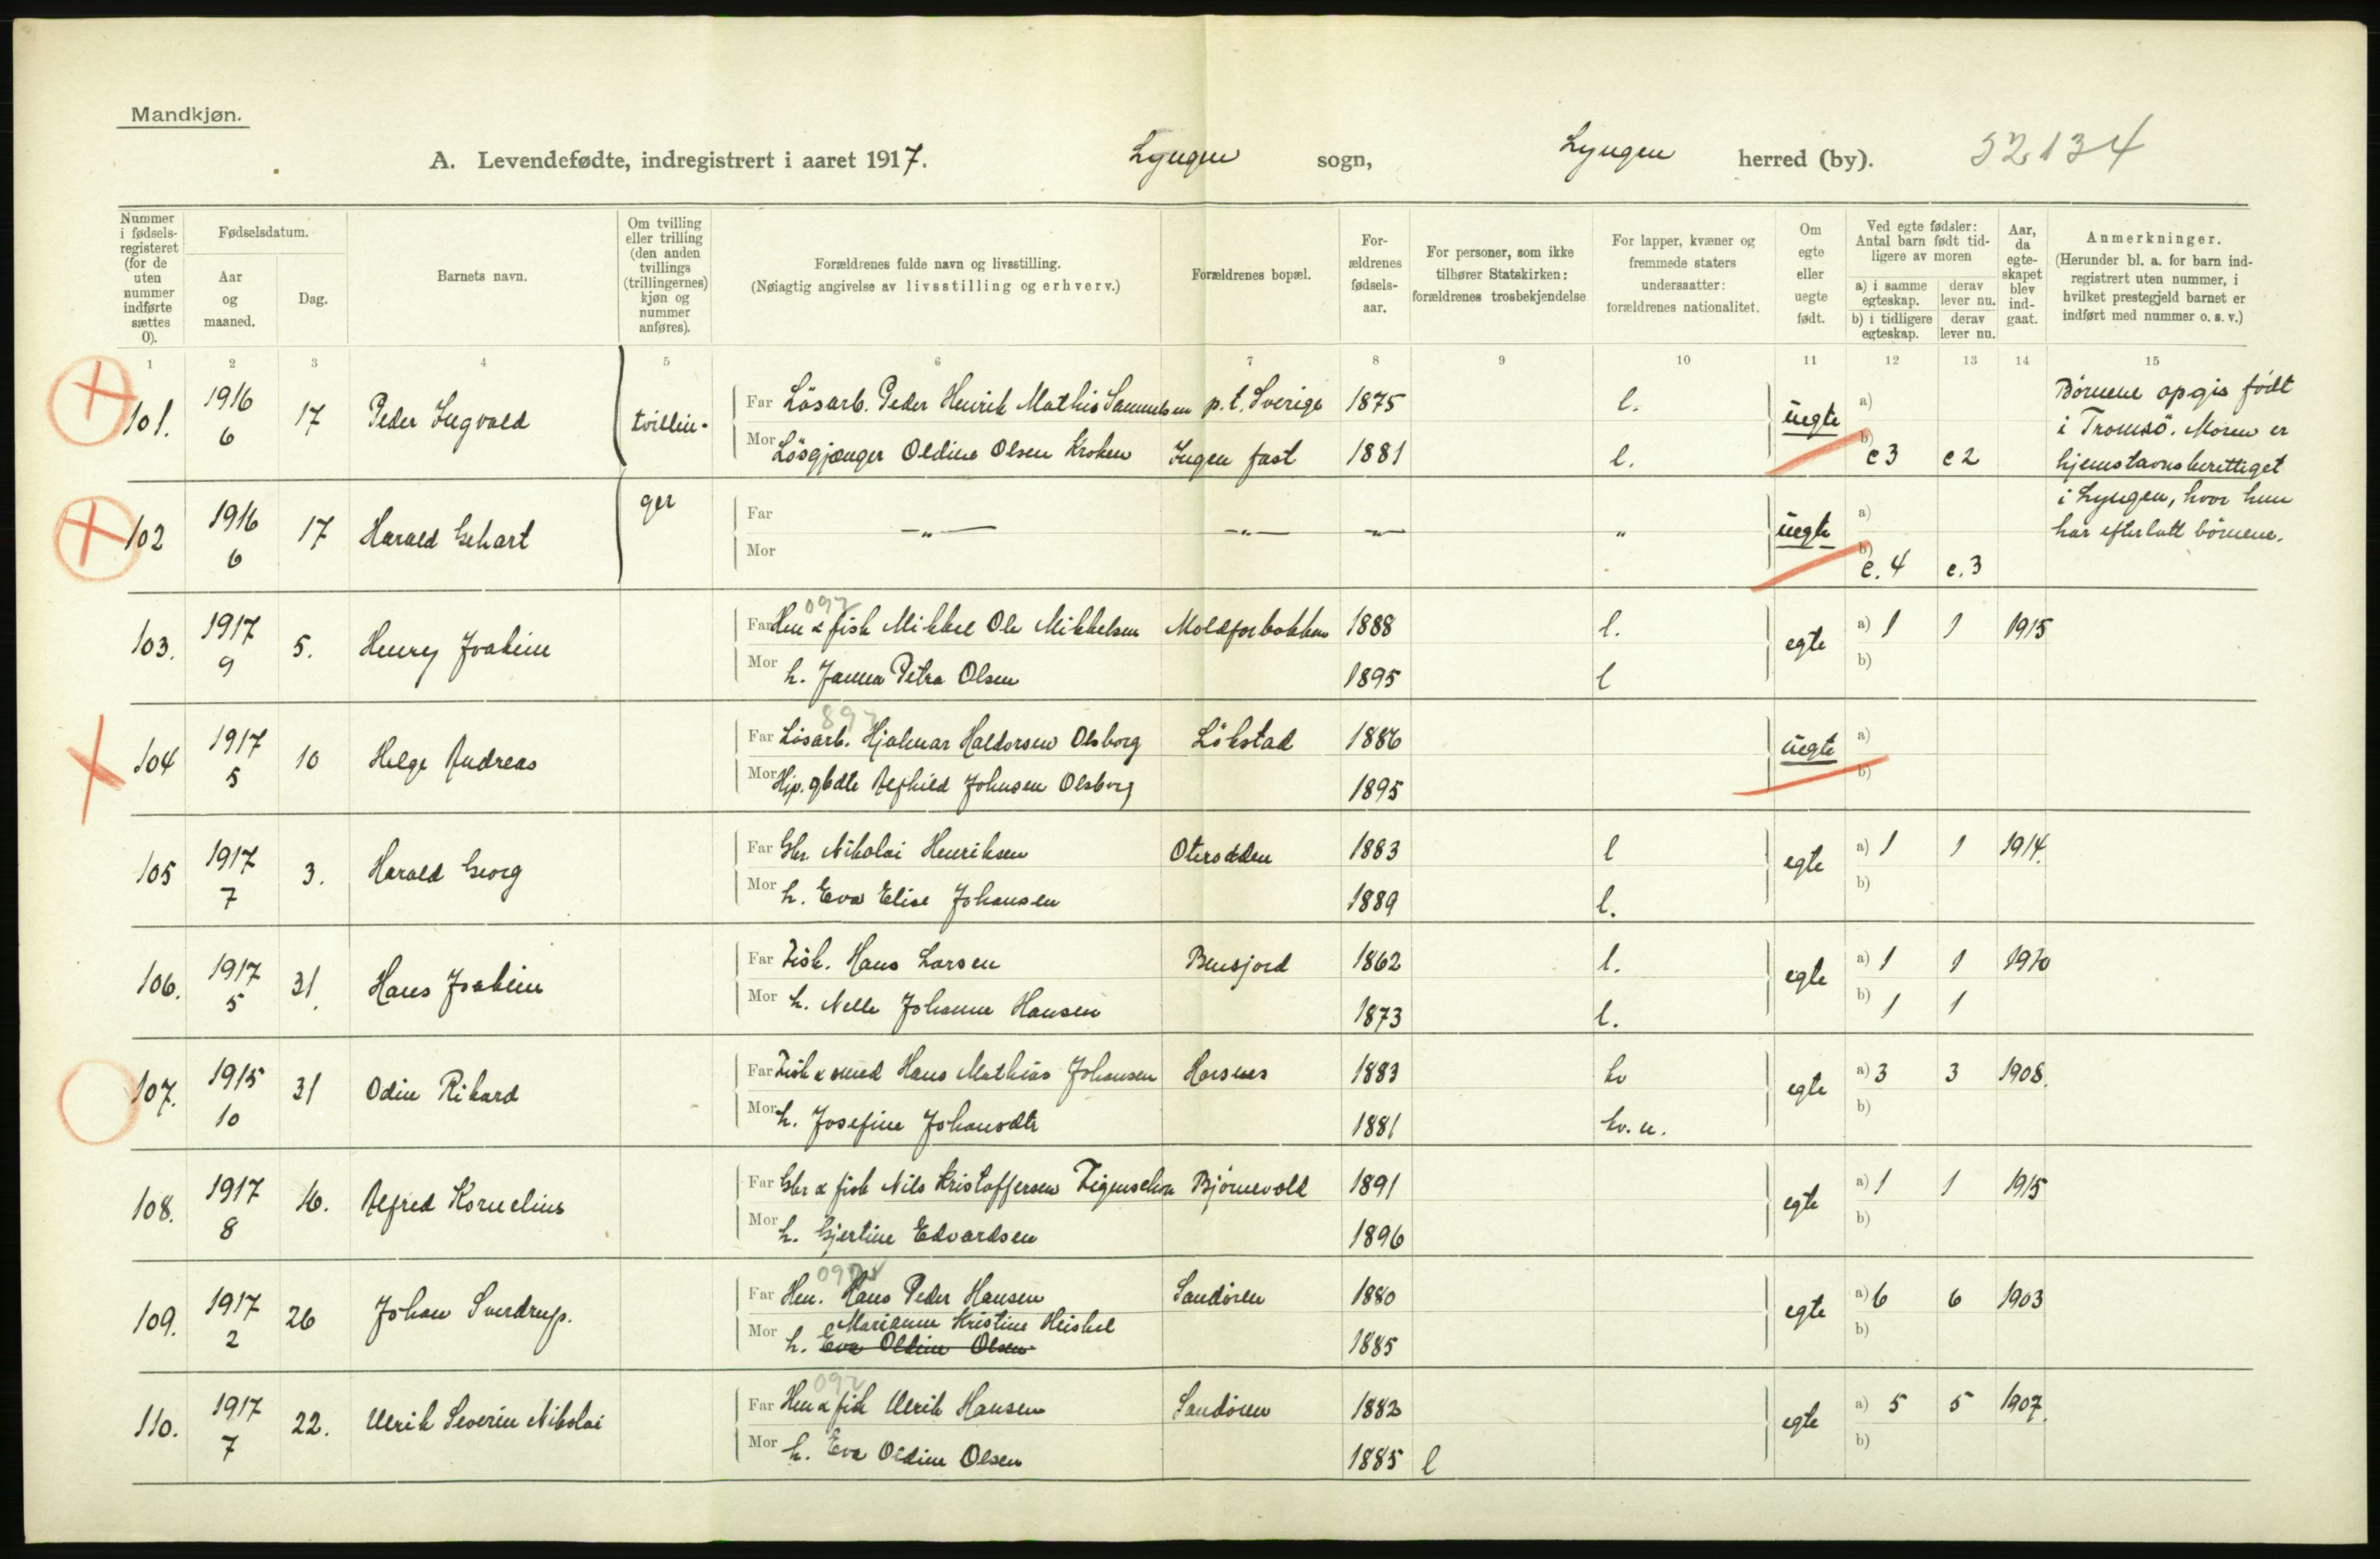 Mandkjøn.
A. Levendefødte, indregistrert i aaret 1917. Lyngen sogn, Lyngen herred (by). 52134
Nummer i fødsels-registeret (for de uten nummer indførte sættes 0).
Fødselsdatum.
Aar og maaned.
Dag.
Barnets navn.
Om tvilling eller trilling (den anden tvillings (trillingernes) kjøn og nummer anføres).
Forældrenes fulde navn og livsstilling.
(Nøiagtig angivelse av livsstilling og erhverv.)
Forældrenes bopæl.
For-ældrenes fødsels-aar.
For personer, som ikke tilhører Statskirken: forældrenes trosbekjendelse
For lapper, kvæner og fremmede staters undersaatter: forældrenes nationalitet.
Om egte eller uegte født.
Ved egte fødsler: Antal barn født tid-ligere av moren
a) i samme egteskap. derav lever nu.
b) i tidligere egteskap. derav lever nu.
Aar, da egte-skapet blev ind-gaat.
Anmerkninger.
(Herunder bl. a. for barn ind-registrert uten nummer, i hvilket prestegjeld barnet er indført med nummer o. s. v.)
1 2 3 4 5 6 7 8 9 10 11 12 13 14 15
101. 1916 6 17 Peder Ingvald tvillin-
Far Lösarb. Peder Henrik Mathis Samuelsen p.t. Sverige 1875 l. uegte a)
Mor Lösgjænger Oldine Olsen Kroken Ingen fast 1881 l. b) e3 e2
Børnene opgis født
i Tromsö. Moren er
hjemstavnsberettiget
i Lyngen, hvor hun
har efterlatt börnene.
102 1916 6 17 Harald Gehart ger
Far — „ — — „ — — „ — „ uegte a)
Mor b) e. 4 e. 3
103. 1917 9 5. Henry Joakim
097
Far Hen & fisk Mikkel Ole Mikkelsen 1888 l. egte a) 1 1 1915
Mor h. Janna Petra Olsen 1895 l b)
104 1917 5 10 Helge Andreas
897
Far Lösarb. Hjalmar Haldorsen Olsborg Lökstad 1886 uegte a)
Mor Hjp. gbdtr Alfhild Johnsen Olsborg 1895 b)
105 1917 7 3. Harald Georg
Far Gbr Nikolai Henriksen Oterodden 1883 l egte a) 1 1 1914.
Mor h. Eva Elise Johansen 1889 l. b)
106. 1917 5 31. Hans Joakim
Far Fisk. Hans Larsen 1862 l. egte a) 1 1 1910
Mor h. Nelle Johanne Hansen 1873 l. b) 1 1
107. 1915 10 31 Odin Rikard
Far Fisk & smed Hans Mathias Johansen Horsnes 1883 kv egte a) 3 3 1908.
Mor h. Josefine Johansdtr 1881 kv. n. b)
108. 1917 8 16. Alfred Kornelius
Far Gbr & fisk Nils Kristoffersen Figenschou Björnevold 1891 egte a) 1 1 1915
Mor h. Gjertine Edvardsen 1896 b)
109. 1917 2 26 Johan Sverdrup.
Far Hen. Hans Peder Hansen Sandören 1880 egte a) 6 6 1903
Marianne Kristine Heiskel
Mor h. Eva Oldine Olsen 1885 b)
110. 1917 7 22. Ulrik Severin Nikolai
092
Far Hen & fisk Ulrik Hansen Sandören 1882 egte a) 5 5 1907.
Mor h. Eva Oldine Olsen 1885 l b)